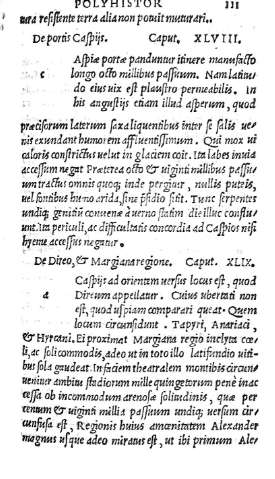 POLYHISTOR 111
tura resistente terra alia non potuit mutuari..
De portis Caspijs. Caput. XLVIII.
Aspiæ portæ panduntur itinere manufacto
c longo octo millibus passuum. Nam latitu-
do eius uix est plaustro permeabilis. In
his angustijs etiam illud asperum, quod
præcisorum laterum saxa liquentibus inter se salis ue-
nis exundant humorem affluentissimum. Qui mox ui
caloris constrictus uelut in glaciem coit. Ita labes inuia
accessum negat. Præterea octo & uiginti millibus passu-
um tractus omnis quoq; inde pergitur, nullis puteis,
uel fontibus humo arida, sine præsidio sitit. Tunc serpentes
undiq; genitũ conuenæ uerno statim die illuc conflu-
unt. Ita periculi, ac difficultatis concordia ad Caspios nisi
hyeme accessus negatur.
De Direo, & Margiana regione. Caput. XLIX.
Caspijs ad orientem uersus locus est, quod
a Direum appellatur. Cuius ubertati non
est, quod uspiam comparari queat. Quem
locum circunsidunt. Tapyri, Anariaci,
& Hyrcani. Ei proximat Margiana regio inclyta cœ-
li, ac soli commodis, adeo ut in toto illo latifundio uiti-
bus sola gaudeat. In faciem theatralem montibus circun-
uenitur ambitu stadiorum mille quingetorum penè inac
cessa ob incommodum arenosæ solitudinis, quæ per
centum & uiginti millia passuum undiq; uersum cir-
cunfusa est. Regionis huius amœnitatem Alexander
magnus usque adeo miratus est, ut ibi primum Ale-